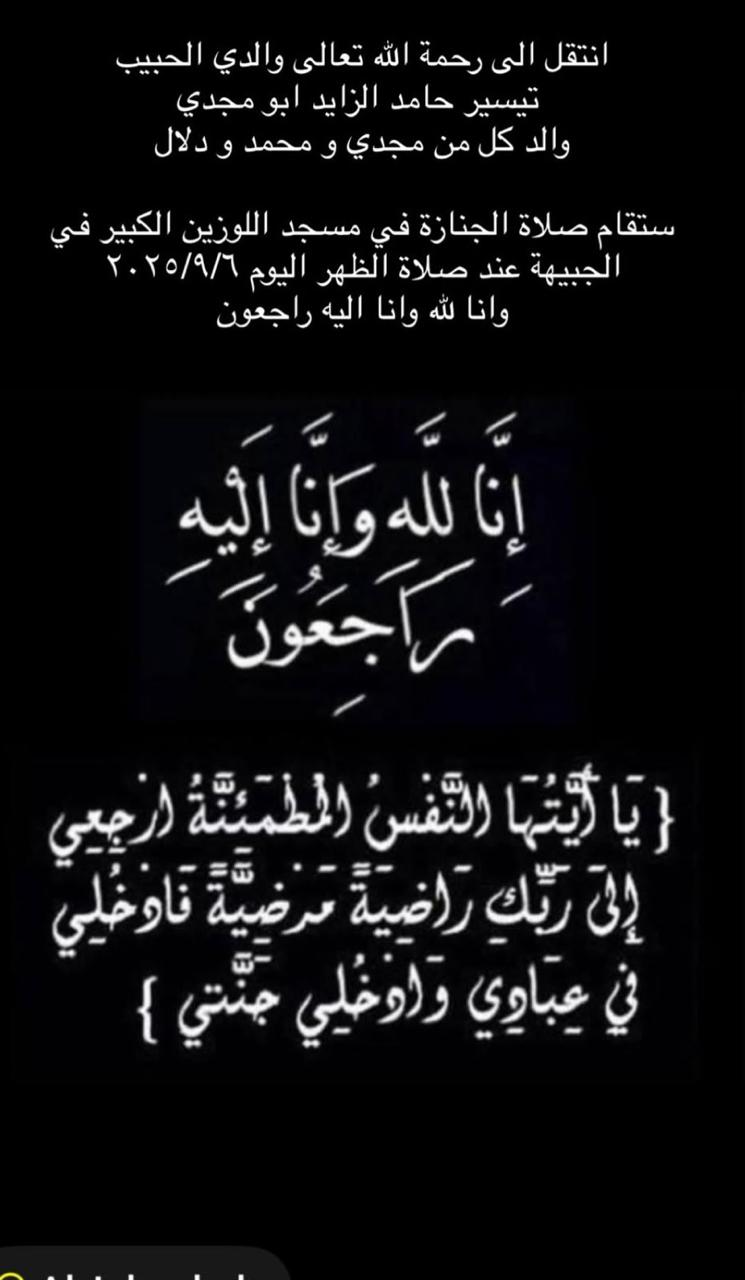 انتقل الى رحمة الله تعالى والدي الحبيب
تيسير حامد الزايد ابو مجدي
والد كل من مجدي و محمد و دلال
ستقام صلاة الجنازة في مسجد اللوزين الكبير في
الجبيهة عند صلاة الظهر اليوم ٢٠٢٥/٩/٦
وانا لله وانا اليه راجعون
إِنَّا لِلَّهِ وَإِنَّا إِلَيْهِ
رَاجِعُونَ
{ يَا أَيَّتُهَا النَّفْسُ الْمُطْمَئِنَّةُ ارْجِعِي
إِلَىٰ رَبِّكِ رَاضِيَةً مَرْضِيَّةً فَادْخُلِي
فِي عِبَادِي وَادْخُلِي جَنَّتِي }